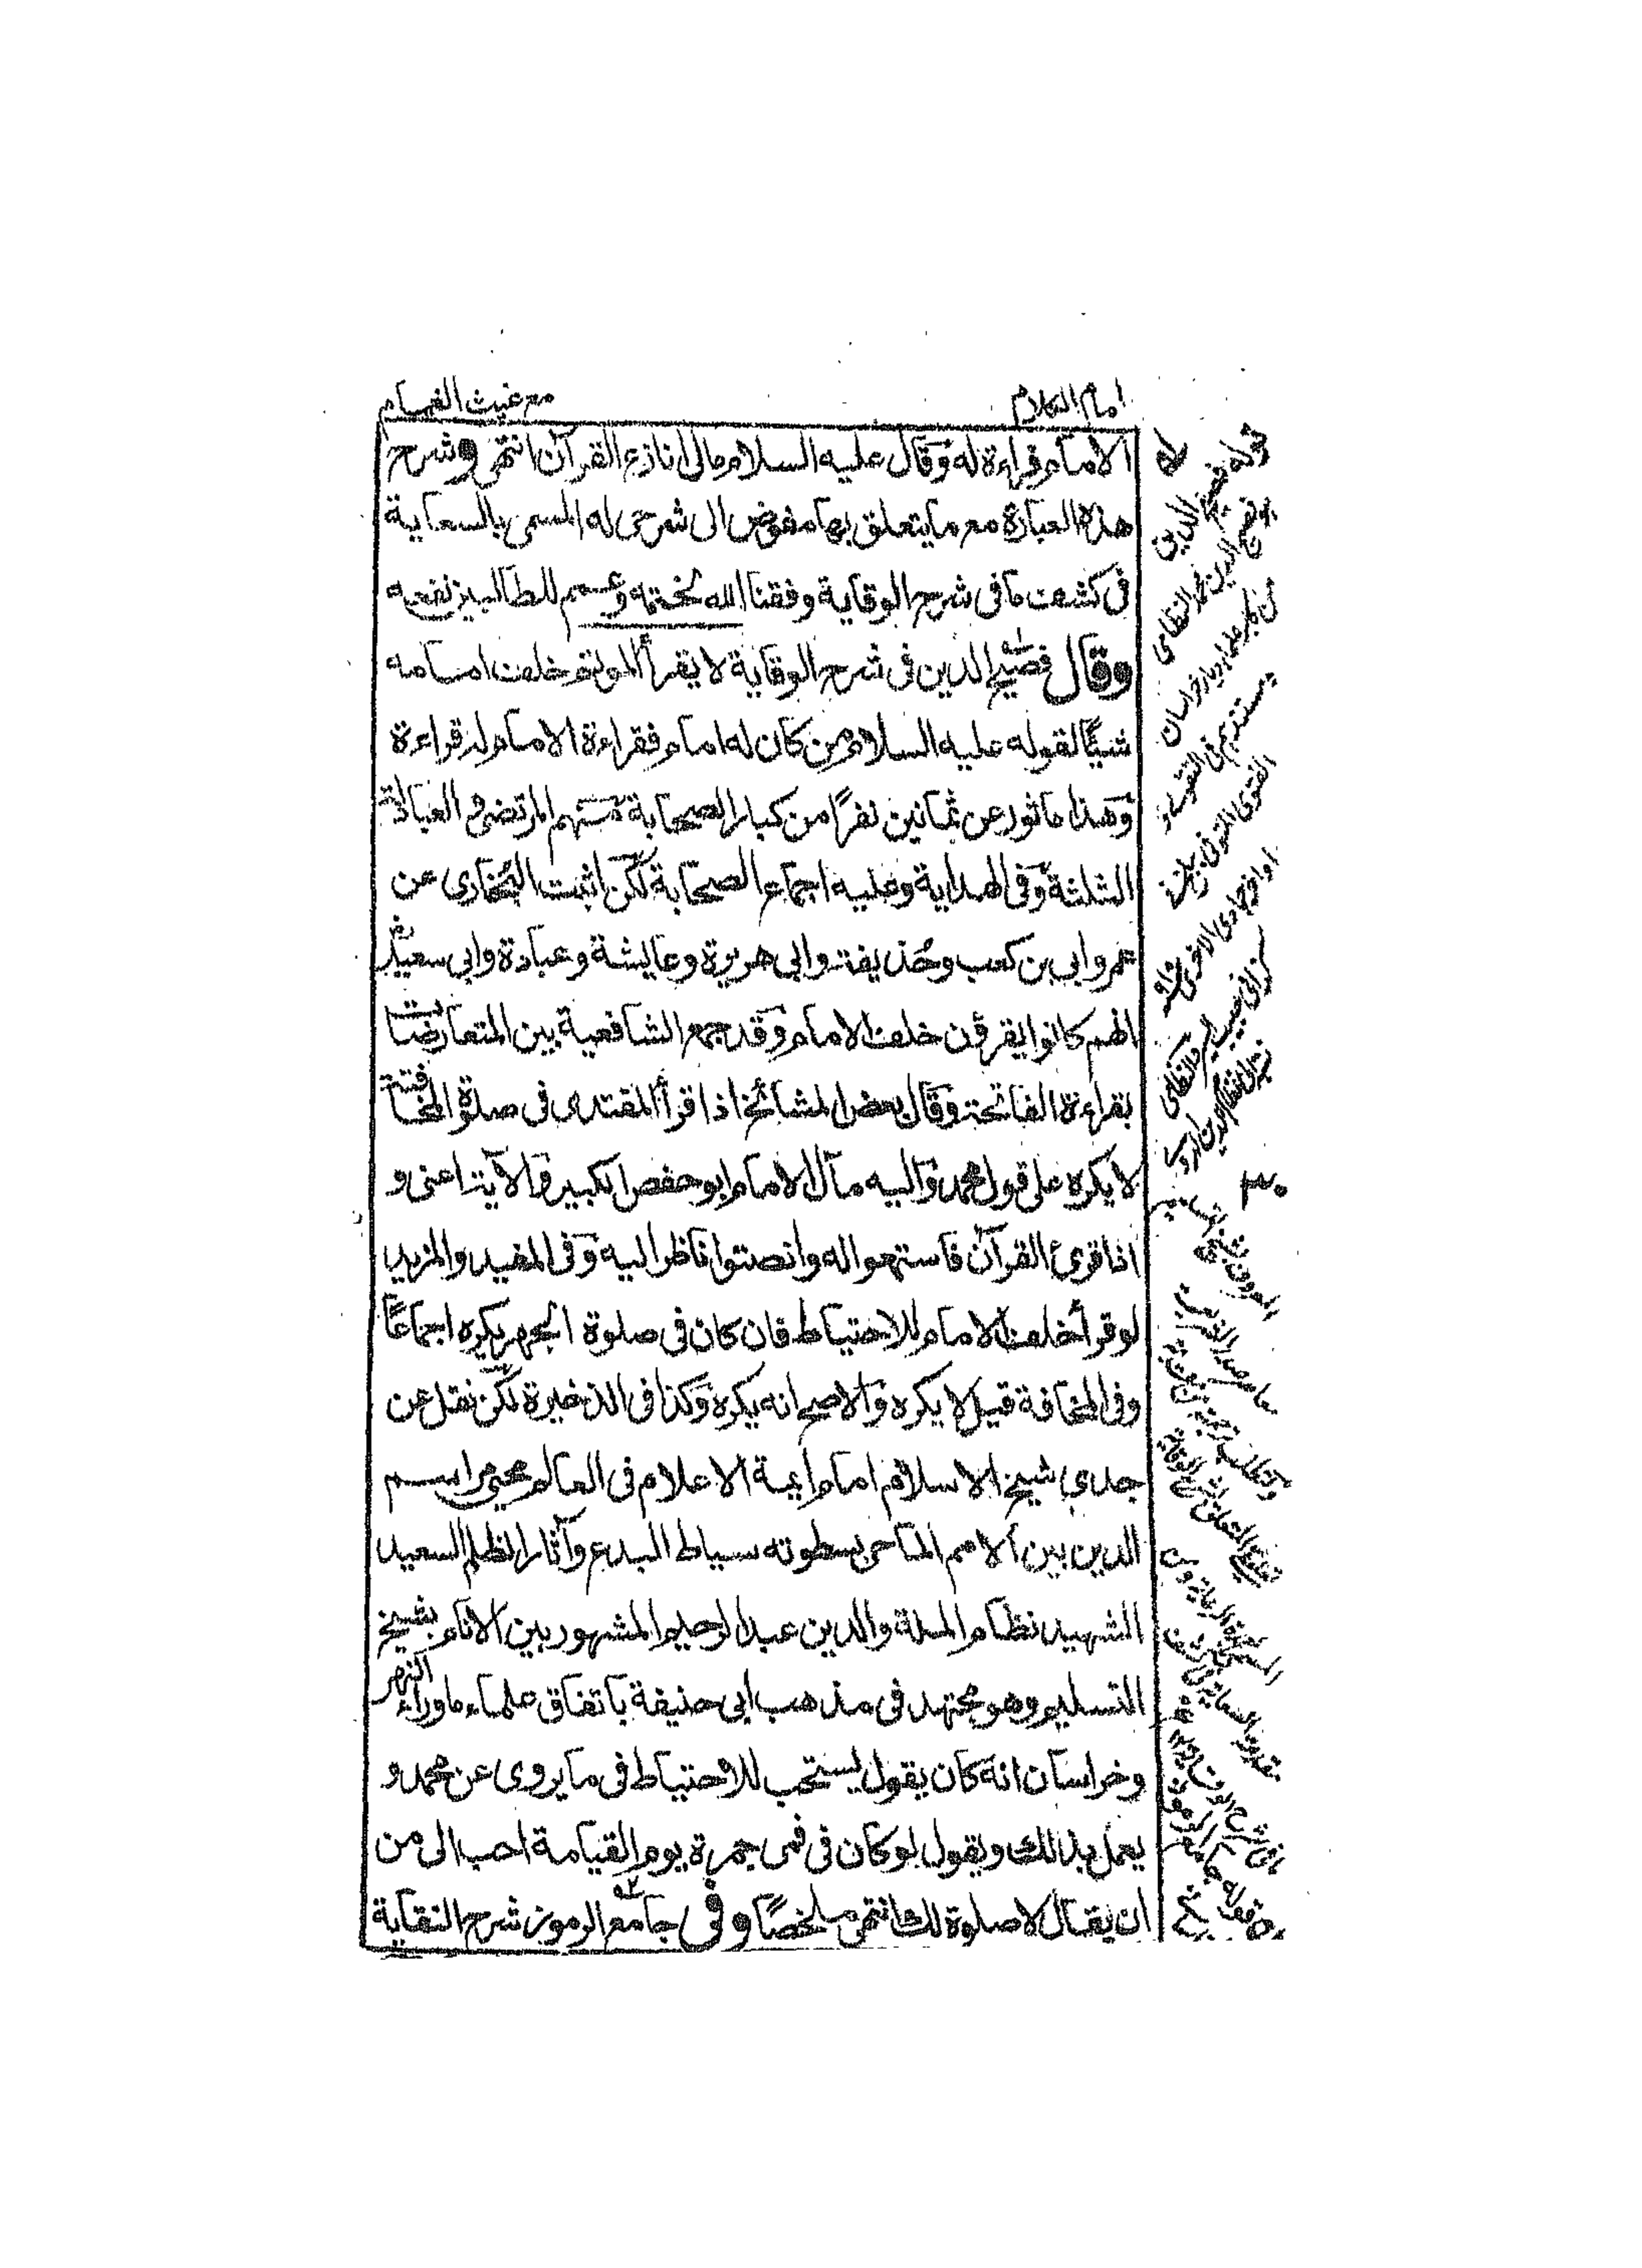 امام الكلام
مع غيث الغمام
الامام قراءة له وقال عليه السلام مالى انازع القرآن انتهى وشرح
هذه العبارة مع ما يتعلق بها مفوض الى شرحى له المسمى بالسعاية
فى كشف ما فى شرح الوقاية وفقنا الله لختمه وعمم للطالبين نفعه
وقال فصيح الدين فى شرح الوقاية لا يقرأ المؤتم خلف امامه
شيئًا لقوله عليه السلام من كان له امام فقراءة الامام له قراءة
وهذا ماثور عن ثمانين نفرًا من كبار الصحابة منهم المرتضى والعبادلة
الثلثة وفى الهداية وعليه اجماع الصحابة لكن اثبت البخارى عن
عمر وابى بن كعب وحُذيفة وابى هريرة وعايشة وعبادة وابى سعيد
انهم كانوا يقرؤن خلف الامام وقد جمع الشافعية بين المتعارضات
بقراءة الفاتحة وقال بعض المشائخ اذا قرأ المقتدى فى صلوة المخافتة
لا يكره على قول محمد واليه مال الامام ابو حفص الكبير والآية اعنى و
اذا قرئ القرآن فاستمعوا له وانصتوا ناظر اليه وفى المفيد والمزيد
لو قرأ خلف الامام للاحتياط فان كان فى صلوة الجهر يكره اجماعًا
وفى المخافة قيل لا يكره والاصح انه يكره وكذا فى الذخيرة لكن نقل عن
جدى شيخ الاسلام امام ايمة الاعلام فى العالم محيى مراسم
الدين بين الامم الماحى بسطوته سياط البدع وآثار الظلم السعيد
الشهيد نظام الملة والدين عبد الرحيم المشهور بين الانام بشيخ
التسليم وهو مجتهد فى مذهب ابى حنيفة باتفاق علماء ماوراء النهر
وخراسان انه كان يقول يستحب للاحتياط فى ما يروى عن محمد و
يعمل بذلك ويقول لو كان فى فمى جمرة يوم القيامة احب الى من
ان يقال لا صلوة لك انتهى ملخصًا وفى جامع الرموز شرح النقاية
قوله فصيح الدين
هو فصيح الدين محمد النظامى
من اكابر علماء ديار خراسان